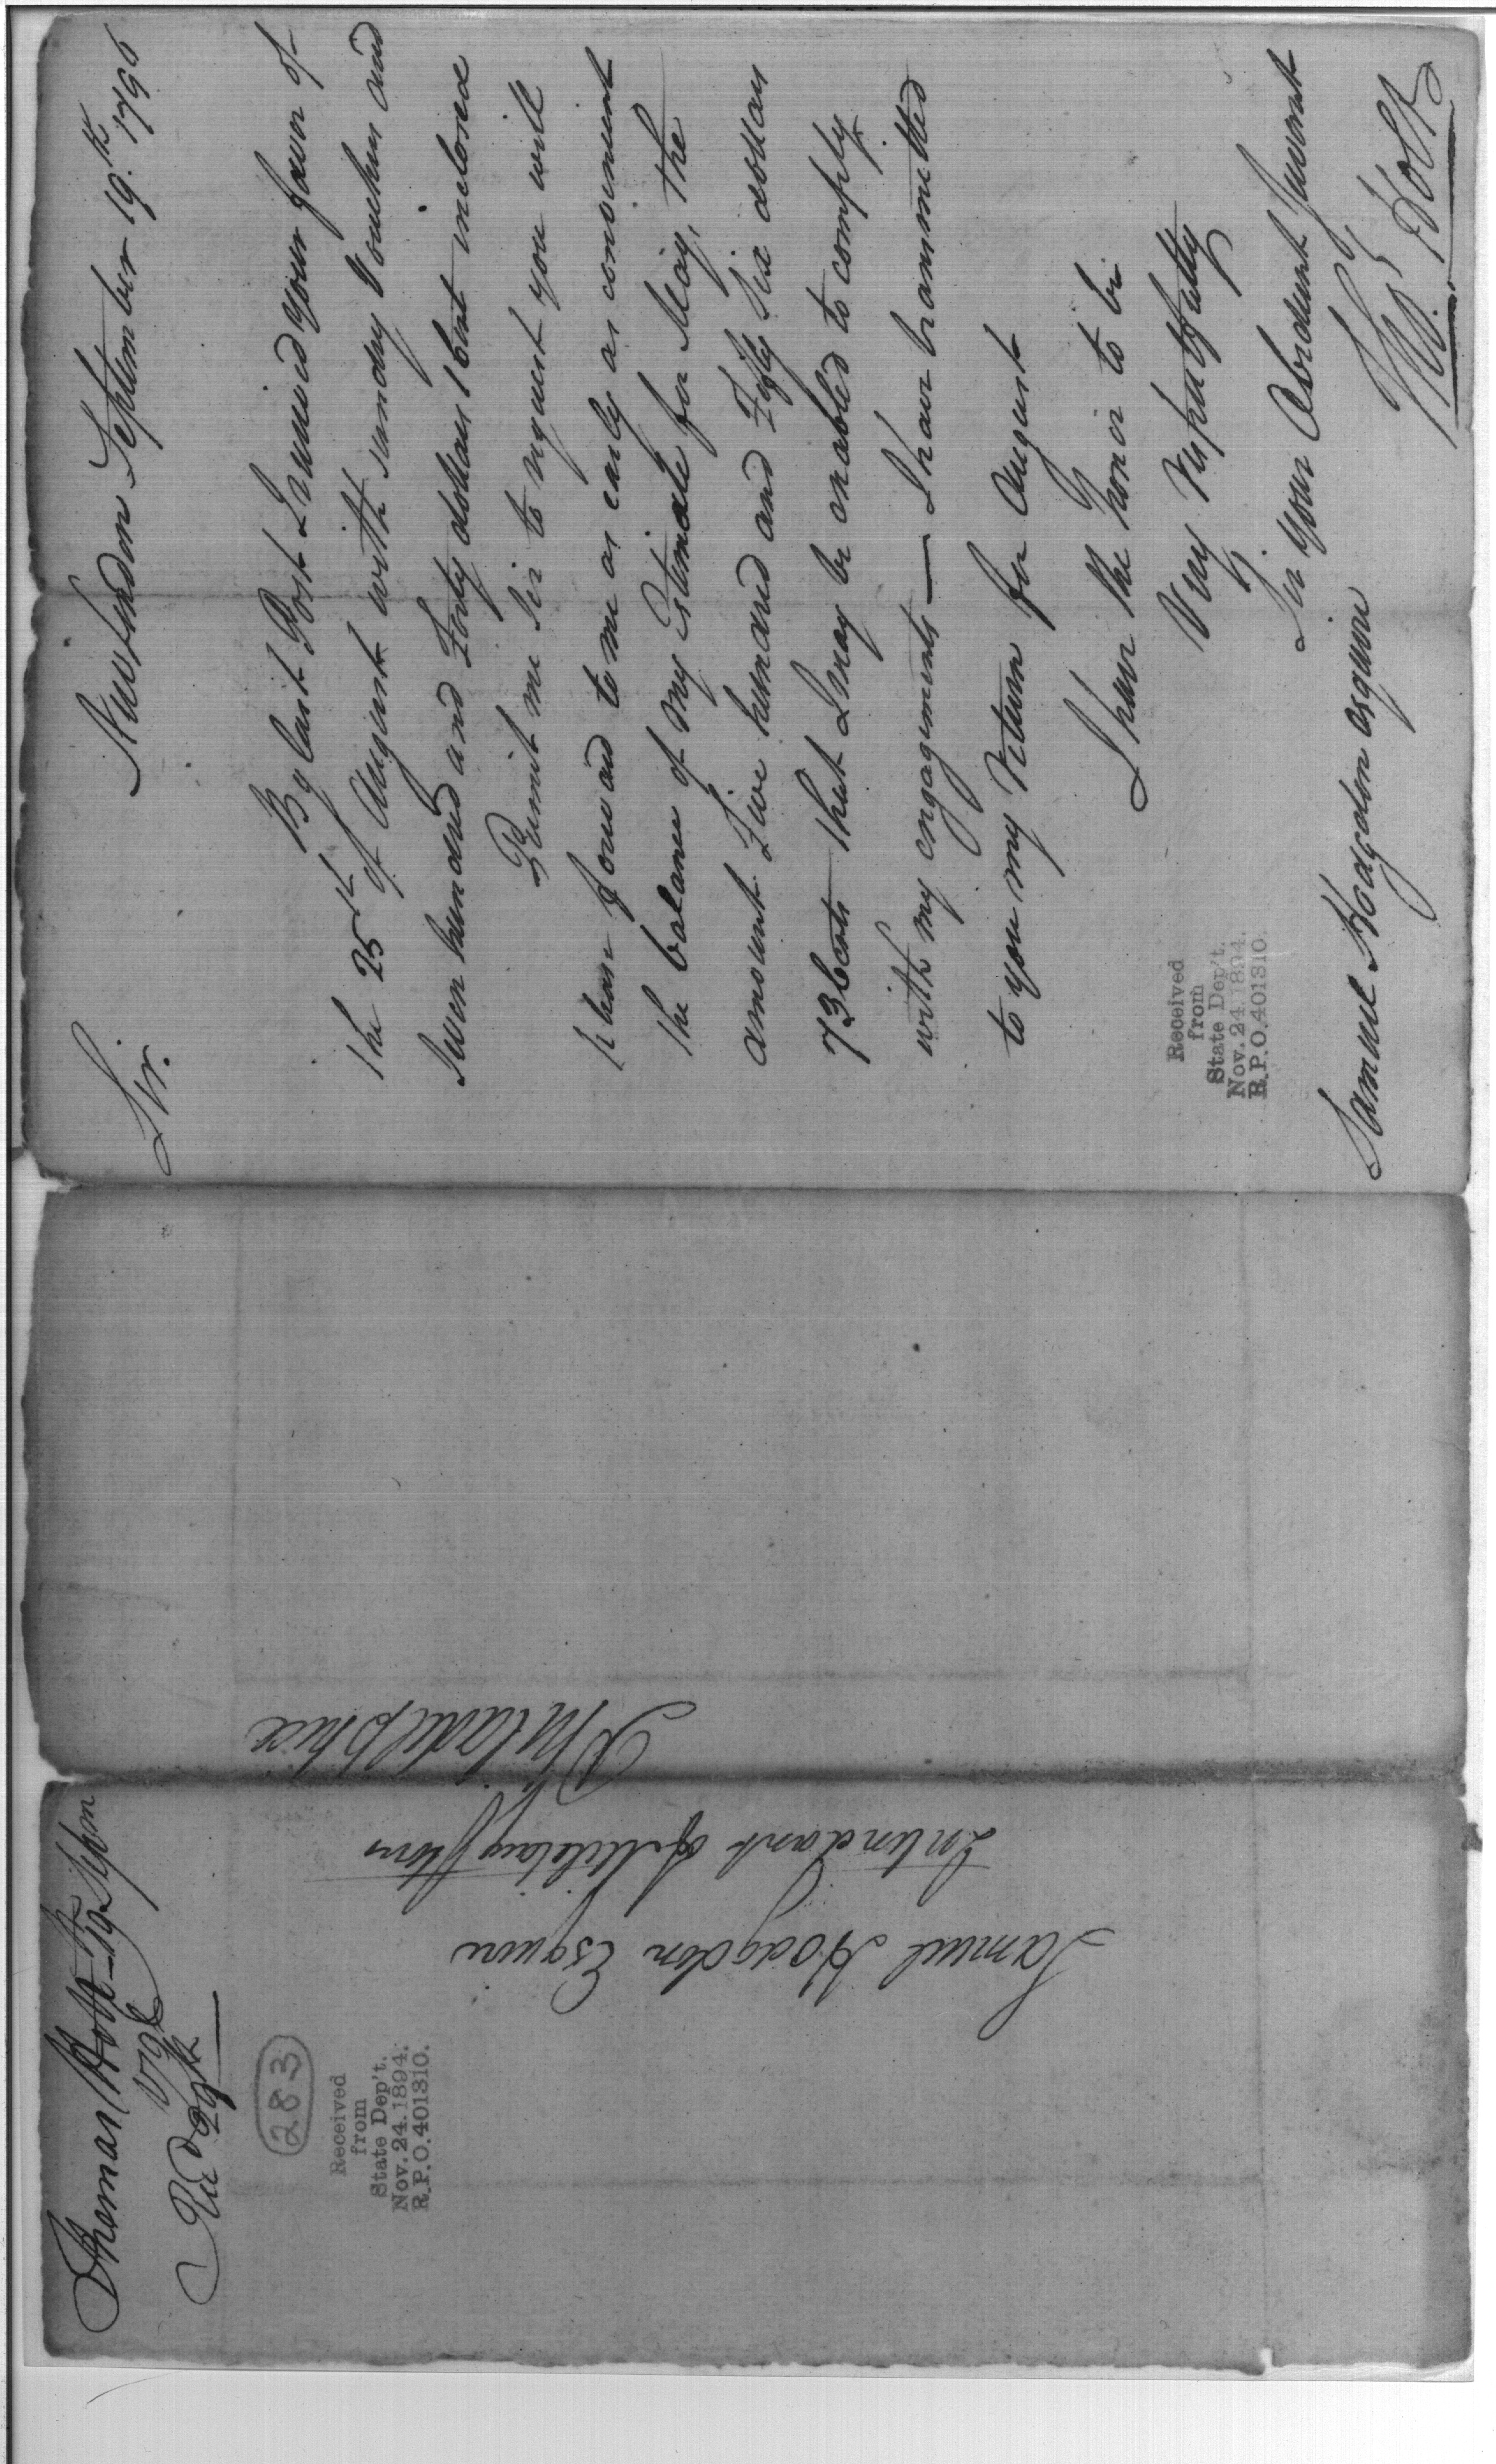 New London September 19.th 1796
Sir.
By last Post I received your favor of
the 25th of August with sundry Vouchers and
Seven hundred and Forty dollars 1 Cent inclosed
Permit me Sir to request you will
please forward to me as early as convenient
the balance of my Estimate for May, the
amount Five hundred and Fifty Six dollars
73 Cents that I may be enabled to comply
with my engagements — I have transmitted
to you my Return for August
I have the honor to be
Very Respectfully
Sir Your Obedient Servant
Tho.s Holt
Samuel Hodgdon esquire
Received
from
State Dep't.
Nov. 24. 1894.
R.P.O. 401310.
Philadelphia
Intendant of Military Stores
Samuel Hodgdon Esquire
Thomas Holt 19 Sepbr
1796
Rec'd 29th
283
Received
from
State Dep't.
Nov. 24. 1894.
R.P.O. 401310.